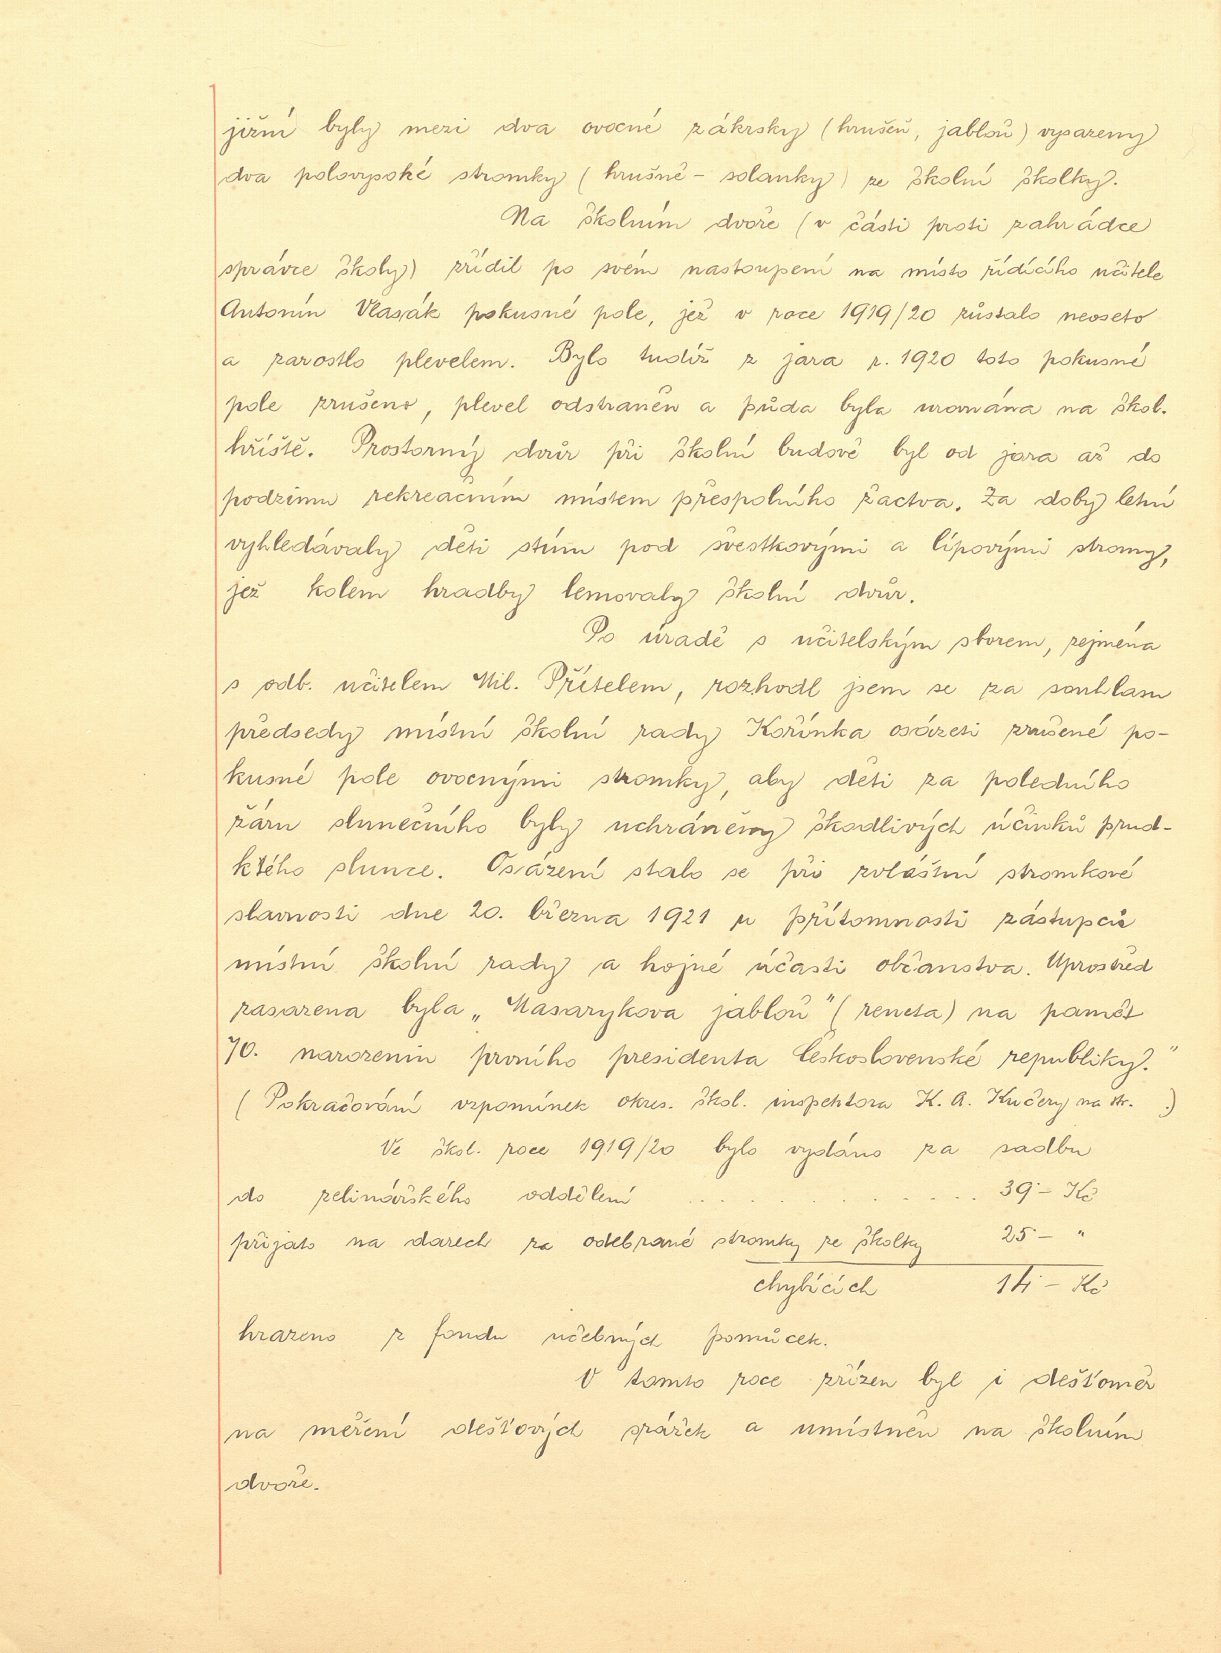 jižní byly mezi dva ovocné zákrsky (hrušeň, jabloň) vysazeny
dva polovysoké stromky (hrušně - solanky) ze školní školky.
Na školním dvoře (v části proti zahrádce
správce školy) zřídil po svém nastoupení na místo řídícího učitele
Antonín Vlasák pokusné pole, jež v roce 1919/20 zůstalo neoseto
a zarostlo plevelem. Bylo tudíž z jara r. 1920 toto pokusné
pole zrušeno, plevel odstraněn a půda byla urovnána na škol.
hřiště. Prostorný dvůr při školní budově byl od jara až do
podzimu rekreačním místem přespolního žactva. Za doby letní
vyhledávaly děti stín pod švestkovými a lípovými stromy,
jež kolem hradby lemovaly školní dvůr.
Po úradě s učitelským sborem, zejména
s odb. učitelem Mil. Přítelem, rozhodl jsem se za souhlasu
předsedy místní školní rady Kořínka osázeti zrušené po-
kusné pole ovocnými stromky, aby děti za poledního
žáru slunečního byly uchráněny škodlivých účinků prud-
kého slunce. Osázení stalo se při zvláštní stromkové
slavnosti dne 20. března 1921 u přítomnosti zástupců
místní školní rady a hojné účasti občanstva. Uprostřed
zasazena byla „Masarykova jabloň" (reneta) na paměť
70. narozenin prvního presidenta Československé republiky."
(Pokračování vzpomínek okres. škol. inspektora K. A. Kučery na str. .)
Ve škol. roce 1919/20 bylo vydáno za sadbu
do zelinářského oddělení . . . . . . . . . . . . . . 39·- Kč
přijato na darech za odebrané stromky ze školky 25 - "
chybících 14·- Kč
hrazeno z fondu učebných pomůcek.
V tomto roce zřízen byl i dešťoměr
na měření dešťových srážek a umístněn na školním
dvoře.